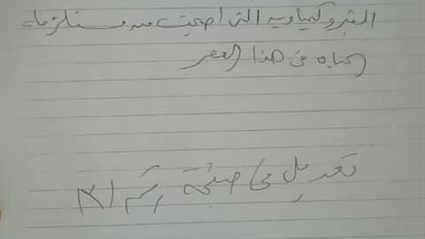 البتروكيماويه التى اصبحت من مستلزمات
الحياه فى هذا العصر
تعديل فى صفحة رقم